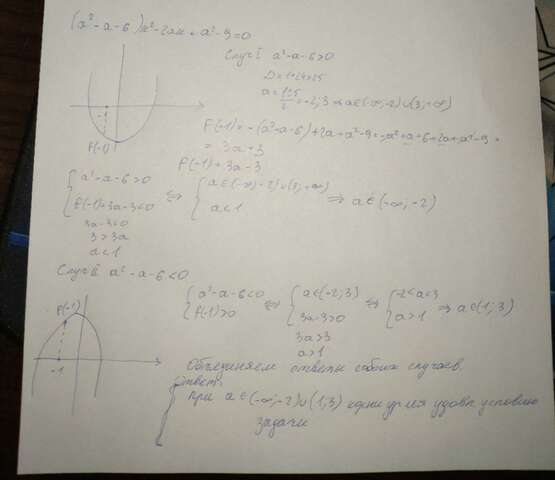 (a²-a-6)x²-2ax+a²-9=0
Случ I a²-a-6>0
D=1+24=25
a=(1±5)/2=-2;3 ⇒ a∈(-∞;-2)∪(3;+∞)
f(-1)=-(a²-a-6)+2a+a²-9=-a²+a+6+2a+a²-9=
= 3a-3
f(-1)
f(-1)=3a-3
{ a²-a-6>0 ⇔ { a∈(-∞;-2)∪(3;+∞) ⇒ a∈(-∞;-2)
f(-1)=3a-3<0 a<1
3a-3<0
3>3a
a<1
Случ II a²-a-6<0
f(-1)
-1
{ a²-a-6<0 ⇔ { a∈(-2;3) ⇔ { -2<a<3 ⇒ a∈(1;3)
f(-1)>0 3a-3>0 a>1
3a>3
a>1
Объединяем ответы обоих случаев.
Ответ:
при a∈(-∞;-2)∪(1;3) корни ур-ия удовл условию
задачи